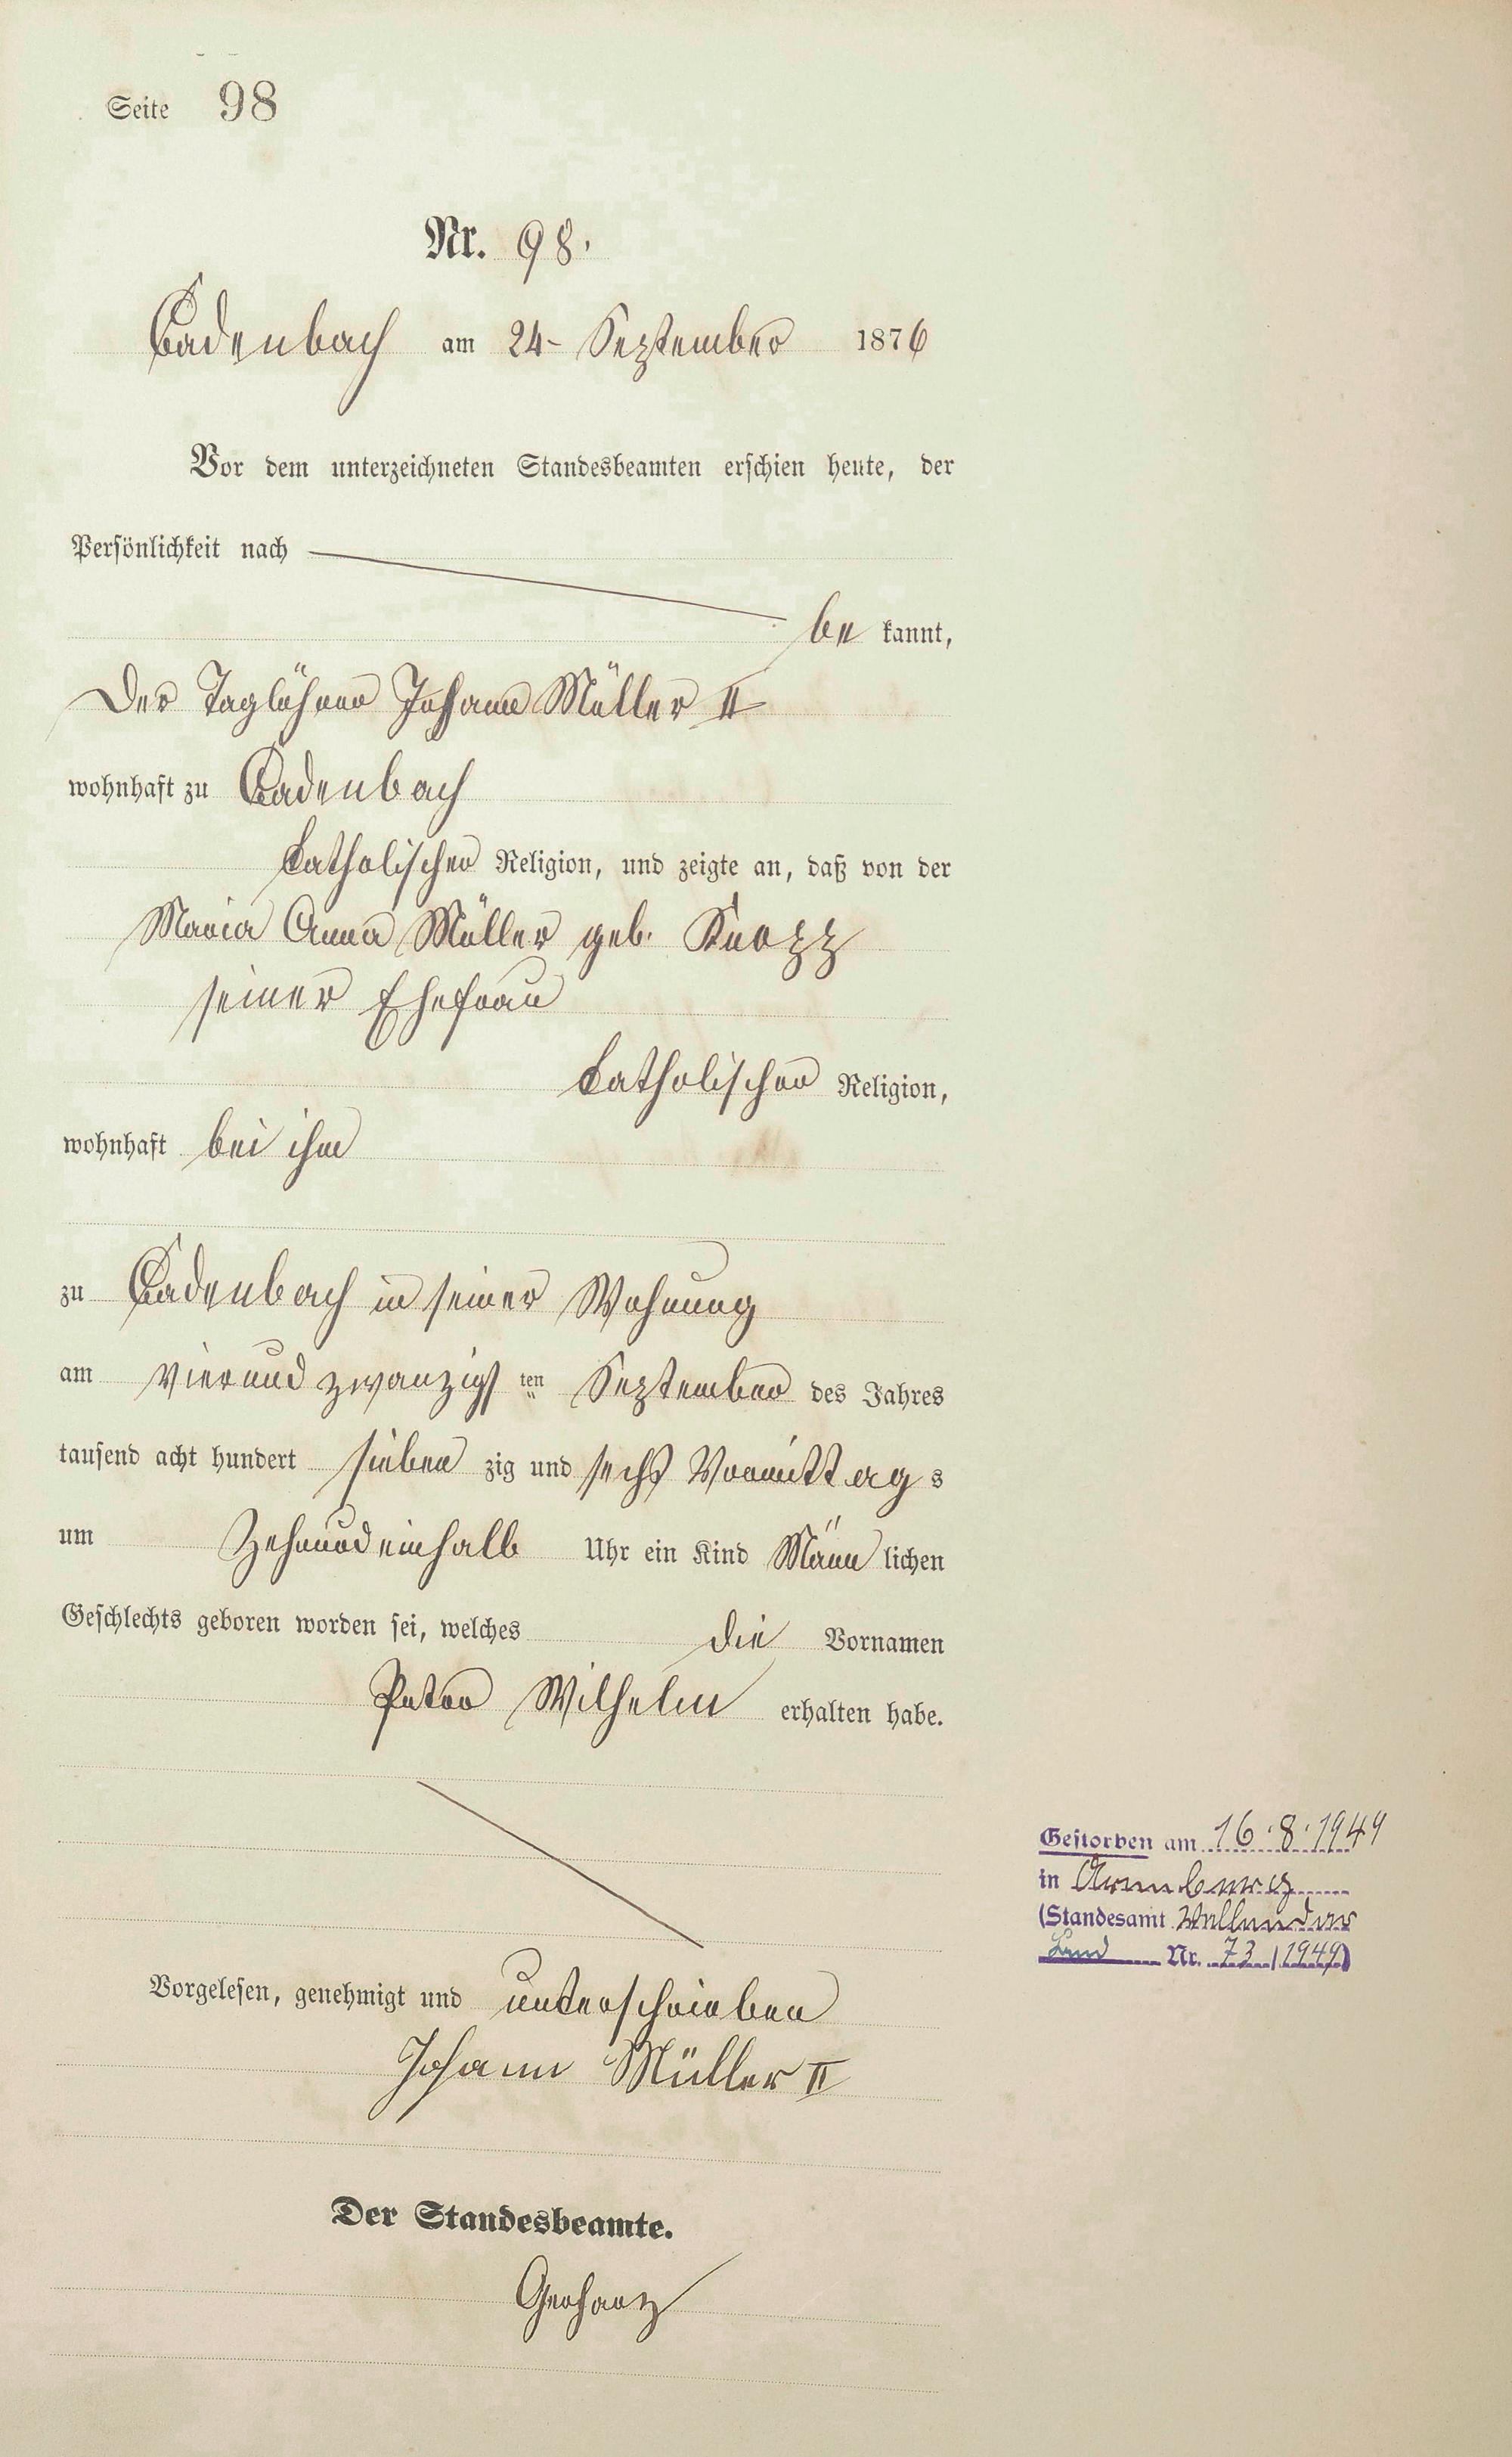 Seite 98
Nr. 98.
Cadenbach am 24- September 1876
Vor dem unterzeichneten Standesbeamten erschien heute, der
Persönlichkeit nach
be kannt,
Der Taglöhner Johann Müller II
wohnhaft zu Cadenbach
katholischer Religion, und zeigte an, daß von der
Maria Anna Müller geb. Knopp
seiner Ehefrau
katholischer Religion,
wohnhaft bei ihm
zu Cadenbach in seiner Wohnung
am vierund zwanzigs ten September des Jahres
tausend acht hundert sieben zig und sechs Vormittag s
um Zehnundeinhalb Uhr ein Kind Männ lichen
Geschlechts geboren worden sei, welches die Vornamen
Peter Wilhelm erhalten habe.
Vorgelesen, genehmigt und unterschrieben
Johann Müller II
Der Standesbeamte.
Gerharz
Gestorben am 16.8.1949
in
(Standesamt Vallendar
Land Nr. 73 / 1949)